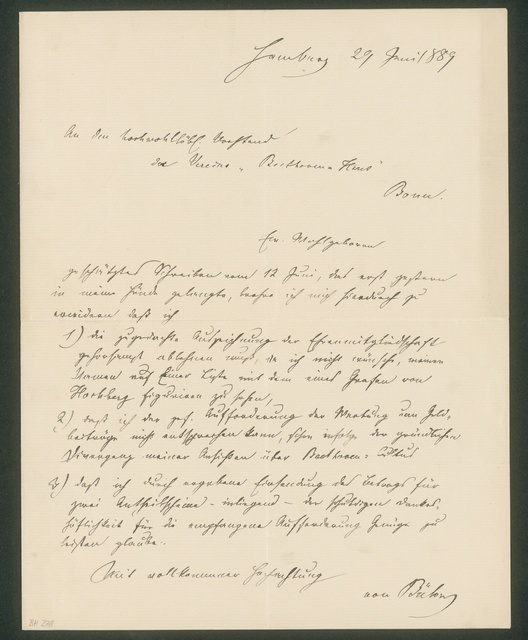 Hamburg 29 Juni 1889
An den hochwohllöbl. Vorstand
des Vereins „Beethoven-Haus"
Bonn.
Ew. Wohlgeboren
geschätztes Schreiben vom 12 Juni, das erst gestern
in meine Hände gelangte, beehre ich mich hierdurch zu
erwidern daß ich
1) die zugedachte Auszeichnung der Ehrenmitgliedschaft
gehorsamst ablehnen muß, da ich nicht wünsche, meinen
Namen auf Einer Liste mit dem eines Grafen von
Hochberg figuriren zu sehen,
2) daß ich der gef. Aufforderung der Werbung um Geld-
beiträge nicht entsprechen kann, schon infolge der gründlichen
Divergenz meiner Ansichten über Beethoven-Cultus
3) daß ich durch ergebene Einsendung des Betrags für
zwei Antheilscheine - inliegend - der schuldigen Dankes-
höflichkeit für die empfangene Aufforderung Genüge zu
leisten glaube.
Mit vollkommner Hochachtung
von Bülow